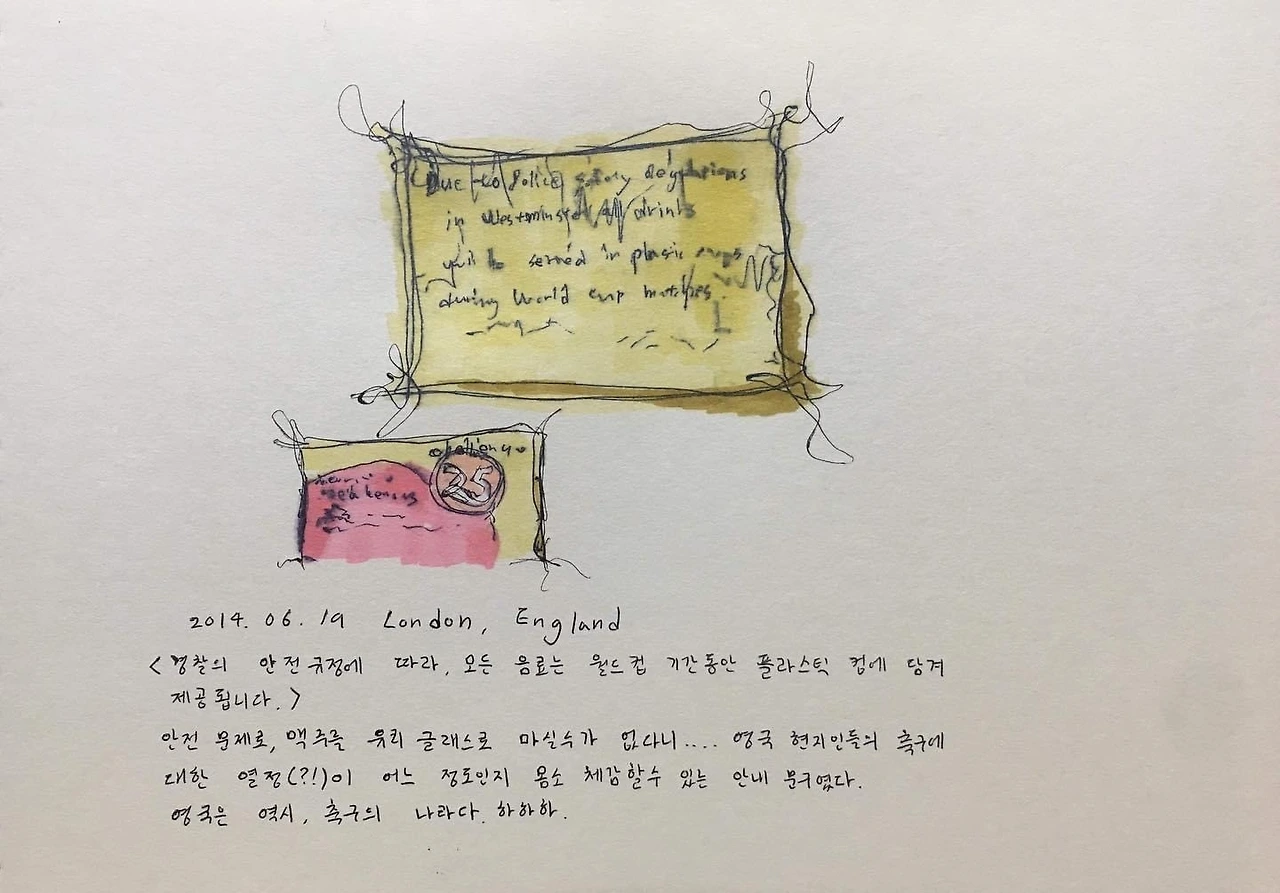 Due to Police safety regulations
in Westminster All drinks
will be served in plastic
during World cup matches
25
2014. 06. 19 London, England
<경찰의 안전규정에 따라, 모든 음료는 월드컵 기간동안 플라스틱 컵에 담겨
제공됩니다.>
안전 문제로, 맥주를 유리 글래스로 마실수가 없다니.... 영국 현지인들의 축구에
대한 열정(?!)이 어느 정도인지 몸소 체감할수 있는 안내 문구였다.
영국은 역시, 축구의 나라다. 하하하.